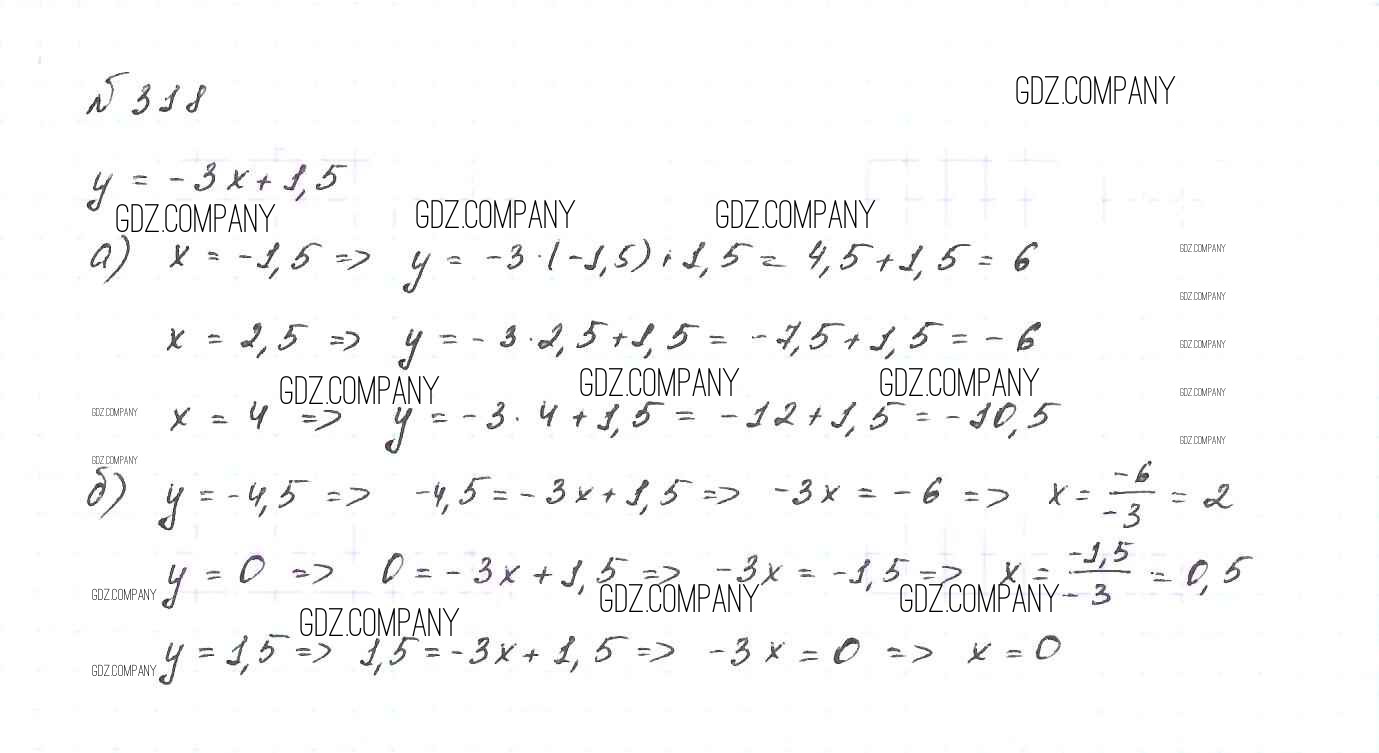 № 318
GDZ.COMPANY
y = -3x + 1,5
GDZ.COMPANY GDZ.COMPANY GDZ.COMPANY
а) x = -1,5 => y = -3·(-1,5)+1,5 = 4,5+1,5 = 6
GDZ.COMPANY
GDZ.COMPANY
x = 2,5 => y = -3·2,5+1,5 = -7,5+1,5 = -6
GDZ.COMPANY
GDZ.COMPANY GDZ.COMPANY GDZ.COMPANY
GDZ.COMPANY
GDZ.COMPANY
x = 4 => y = -3·4+1,5 = -12+1,5 = -10,5
GDZ.COMPANY
GDZ.COMPANY
б) y = -4,5 => -4,5 = -3x+1,5 => -3x = -6 => x = -6/-3 = 2
y = 0 => 0 = -3x+1,5 => -3x = -1,5 => x = -1,5/-3 = 0,5
GDZ.COMPANY
GDZ.COMPANY GDZ.COMPANY GDZ.COMPANY
y = 1,5 => 1,5 = -3x+1,5 => -3x = 0 => x = 0
GDZ.COMPANY